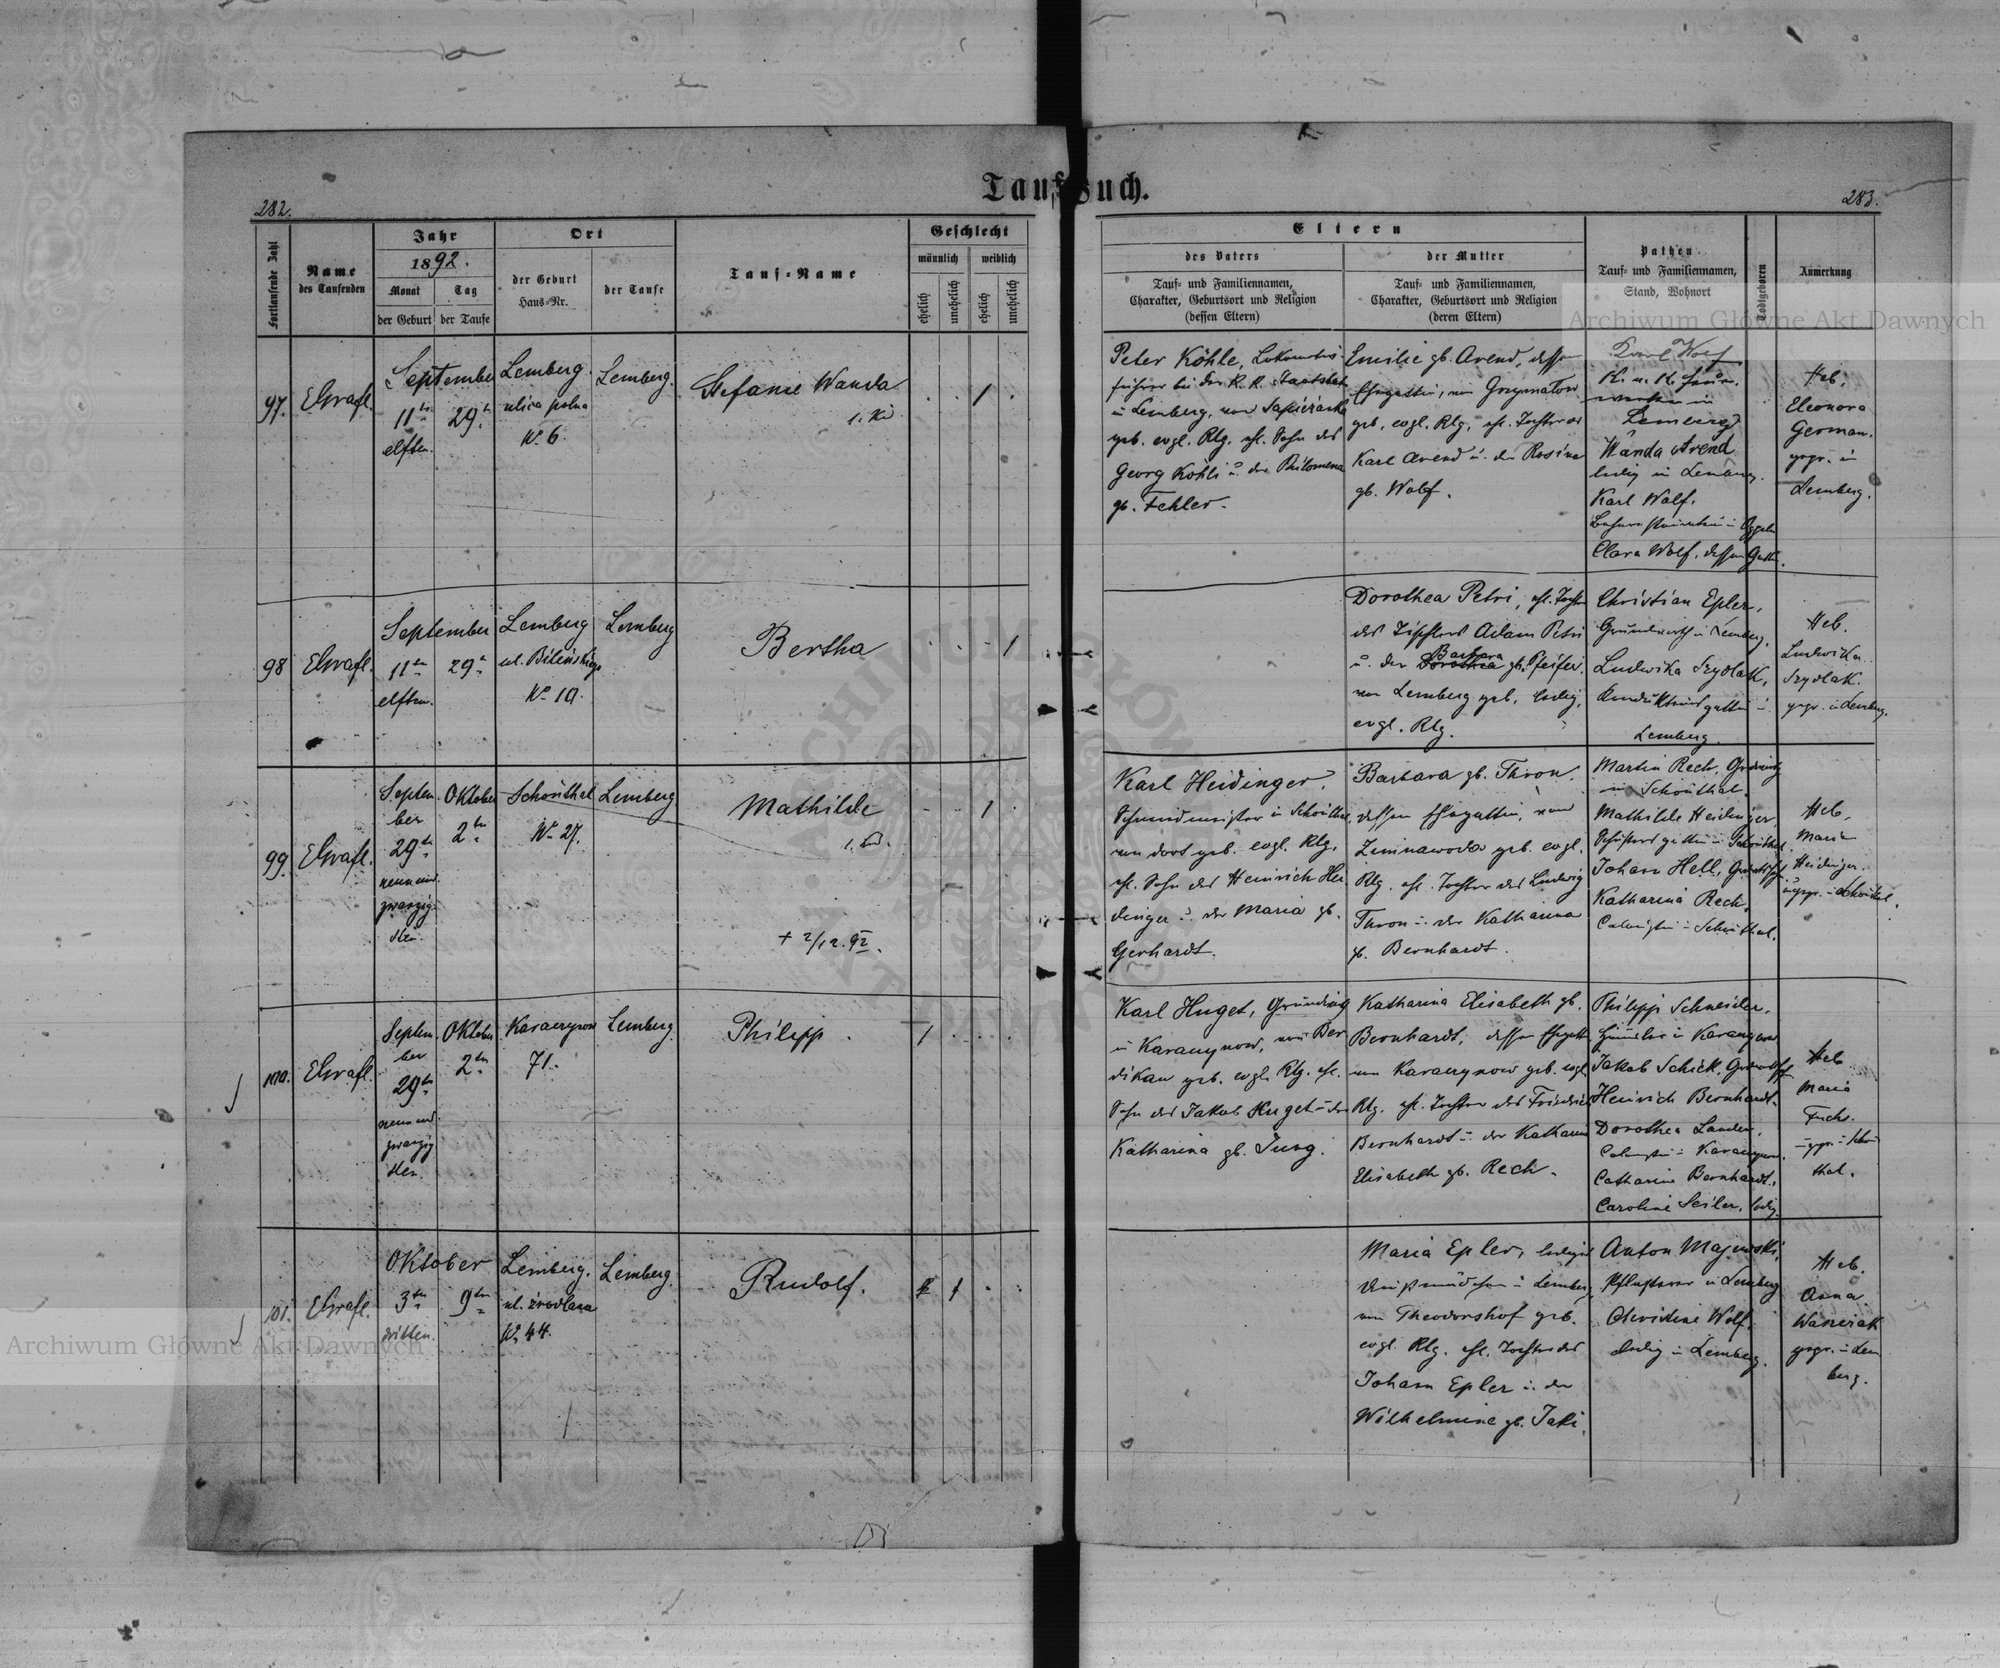 Taufbuch.
282.
283.
Fortlaufende Zahl
Name
des Taufenden
Jahr
1892.
Monat
Tag
der Geburt
der Taufe
Ort
der Geburt
Haus-Nr.
der Taufe
Tauf-Name
Geschlecht
männlich
weiblich
ehelich
unehelich
ehelich
unehelich
Eltern
des Vaters
Tauf- und Familiennamen,
Charakter, Geburtsort und Religion
(dessen Eltern)
der Mutter
Tauf- und Familiennamen,
Charakter, Geburtsort und Religion
(deren Eltern)
Pathen
Tauf- und Familiennamen,
Stand, Wohnort
Todtgeboren
Anmerkung
97.
September
11
29
elften.
Lemberg.
ulica polna
No 6.
Lemberg.
Stefanie Wanda
Peter Köhle,
führer bei der K. K. Staatsbahn
in Lemberg, von
geb. evgl. Rlg. ehl. Sohn des
Georg Köhli u. der Philomena
gb. Fehler.
Emilie gb. Arend, dessen
Ehegattin, von
geb. evgl. Rlg. ehl. Tochter des
Karl Arend u. der Rosina
gb. Wolf.
Karl Wolf
Lemberg
Wanda Arend
ledig in Lemberg.
Karl Wolf.
Clara Wolf, dessen Gattin.
Heb.
Eleonora
German.
gepr. in
Lemberg.
98
September
11
29
elften.
Lemberg
ul. Bilińskiego
No 10.
Lemberg
Bertha
Dorothea Petri, ehl. Tochter
des Tischlers Adam Petri
Barbara
u. der Dorothea gb. Pfeifer
von Lemberg geb. ledig,
evgl. Rlg.
Christian Epler,
Grundwirth in Lemberg,
Ludwika Szydlak,
Lemberg.
Heb.
Ludwika
Szydlak.
gepr. in Lemberg.
99.
Septem
ber
29
neun und
zwanzig
sten.
Oktober
2
Schönthal
No 27.
Lemberg
Mathilde
+ 2/12. 92.
Karl Heidinger,
Schmiedmeister in Schönthal,
von dort geb. evgl. Rlg.
ehl. Sohn des Heinrich Hei
dinger u. der Maria gb.
Gerhardt.
Barbara gb. Thron.
dessen Ehegattin, von
Zimnawoda geb. evgl.
Rlg. ehl. Tochter des Ludwig
Thron u. der Katharina
gb. Bernhardt.
Martin Rech,
in Schönthal.
Mathilde Heidinger
Johann Hell,
Katharina Rech,
Schönthal.
Heb.
Maria
Heidinger.
100.
Septem
ber
29
neun und
zwanzig
sten.
Oktober
2
Karaczynow
71.
Lemberg.
Philipp.
Karl Huget,
in Karaczynow, von Ber
dikau geb. evgl. Rlg. ehl.
Sohn des Jakob Huget u. der
Katharina gb. Jung.
Katharina Elisabeth gb.
Bernhardt, dessen Ehegattin
von Karaczynow geb. evgl.
Rlg. ehl. Tochter des Friedrich
Bernhardt u. der Katharina
Elisabeth gb. Rech.
Philipp Schneider,
in Karaczynow
Jakob Schick,
Heinrich Bernhardt.
Dorothea Lander,
Karaczynow.
Catharine Bernhardt,
Caroline Seiler, ledig
Heb.
Maria
Fuchs.
gepr. in Schön
thal.
101.
Oktober
3
9
dritten.
Lemberg.
ul. źródlana
No 44.
Lemberg.
Rudolf.
Maria Epler, lediges
Dienstmädchen in Lemberg,
von Theodorshof geb.
evgl. Rlg. ehl. Tochter des
Johann Epler u. der
Wilhelmine gb. Jaki.
Anton Majewski,
Pflasterer in Lemberg
Christine Wolf.
ledig in Lemberg.
Heb.
Anna
gepr. in Lem
berg.
Archiwum Główne Akt Dawnych
Archiwum Główne Akt Dawnych